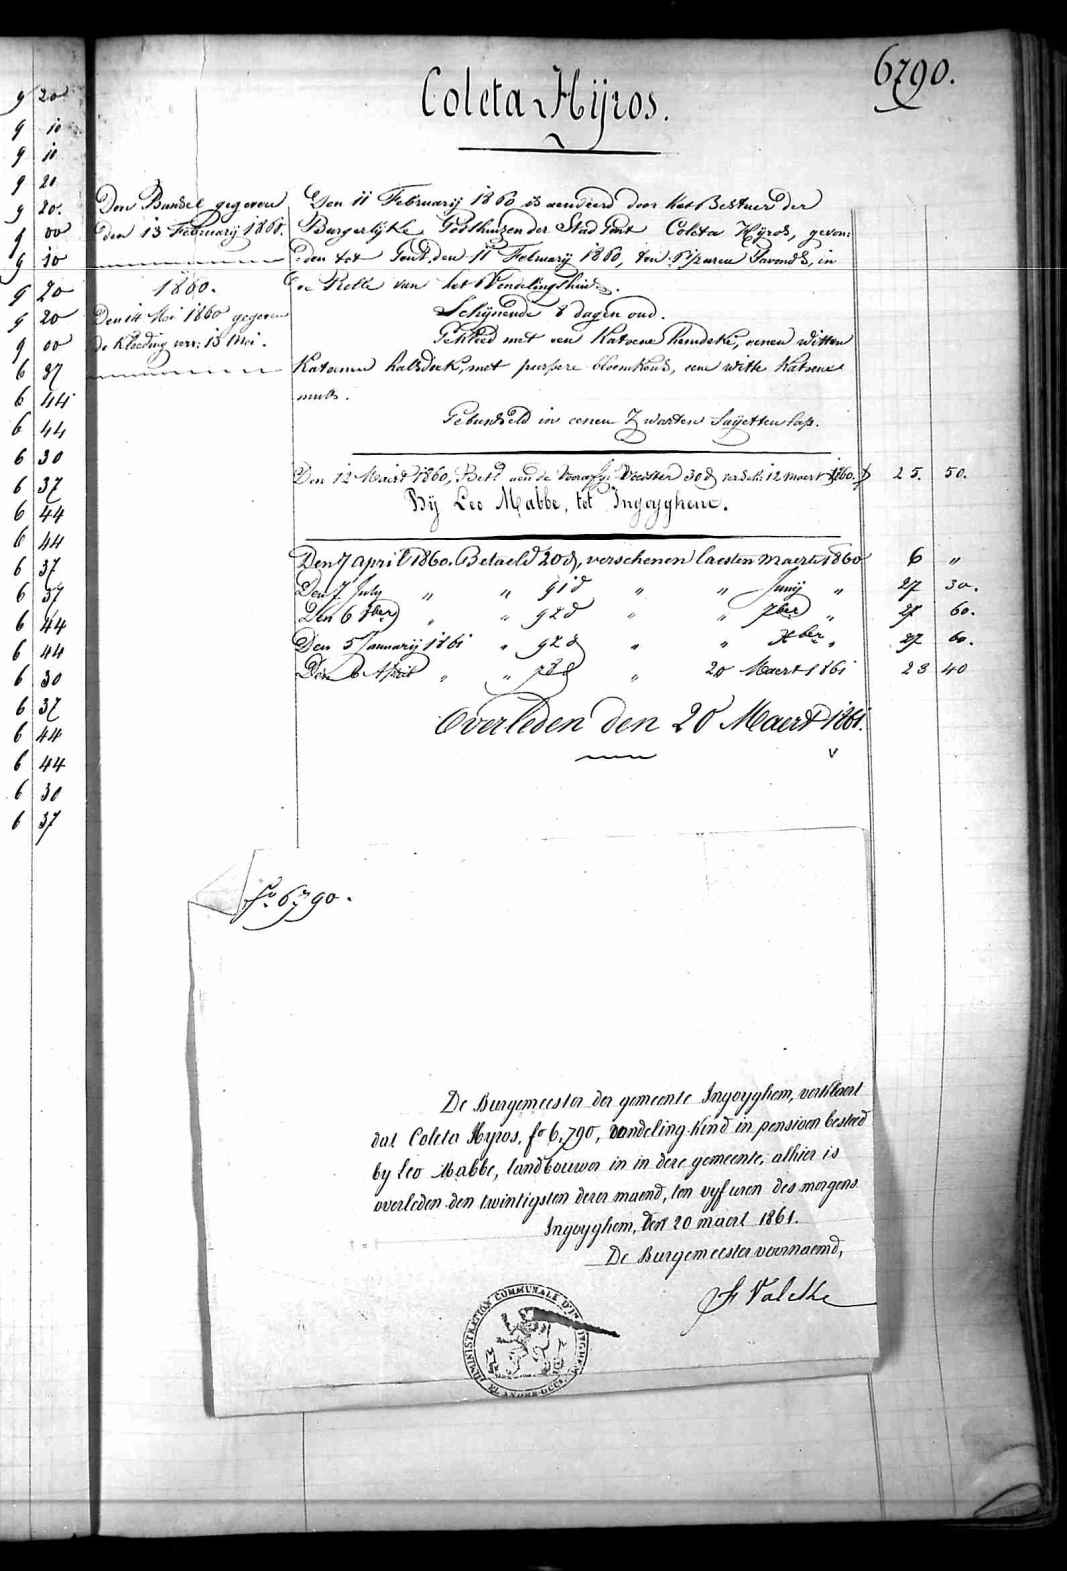 6790.
Coleta Hijros.
9 20
9 10
9 10
9 20
9 20.
9 00
9 10
9 20
9 20
9 00
6 37
6 44
6 44
6 30
6 37
6 44
6 44
6 37
6 37
6 44
6 44
6 30
6 37
6 44
6 44
6 30
6 37
Den Bundel gegeven
den 13 Februarij 1860.
1860.
Den 14 Mei 1860 gegeven
de Kleeding verv: 13 Mei.
Den 11 Februarij 1860 is aenveerd door het Bestuer der
Burgerlijke Godshuizen der Stad Gent Coleta Hijros, gevon:
:den tot Gent, den 11 Februarij 1860, ten uren S'avonds, in
de Rolle van het Vondelingshuis.
Schijnende 8 dagen oud.
Gekleed met een Katoene hemdeke, eenen witten
Katoenen halsdoek, met purpere bloemkens, eene witte Katoene
muts.
Gebunseld in eenen Zwarten Sayetten lap.
Den 12 Maert 1860, Bet. aen de Voorafg. Voedster 30 d versch. 12 maert 1860. 25. 50.
Bij Leo Mabbe, tot Ingoyghem.
Den 7 April 1860. Betaeld 20 d, verschenen laesten maert 1860 6 "
Den 7 July " " 91 d " " Junij " 27 30.
Den 6 8ber " " 92 d " " 7ber " 27 60.
Den 5 Januarij 1861 " 92 d " " Xber " 27 60.
Den 6 April " " 78 d " 20 Maert 1861 23 40
Overleden den 20 Maert 1861.
fo. 6790.
De Burgemeester der gemeente Ingoyghem, verklaert
dat Coleta Hyros, fo 6,790, vondeling-kind in pensioen besteed
by Leo Mabbe, landbouwer in in deze gemeente, alhier is
overleden den twintigsten dezer maend, ten vyf uren des morgens
Ingoyghem, den 20 maert 1861.
De Burgemeester voornaemd,
ADMINISTRATION COMMUNALE D'INGOYGHEM
FLANDRE OCC.